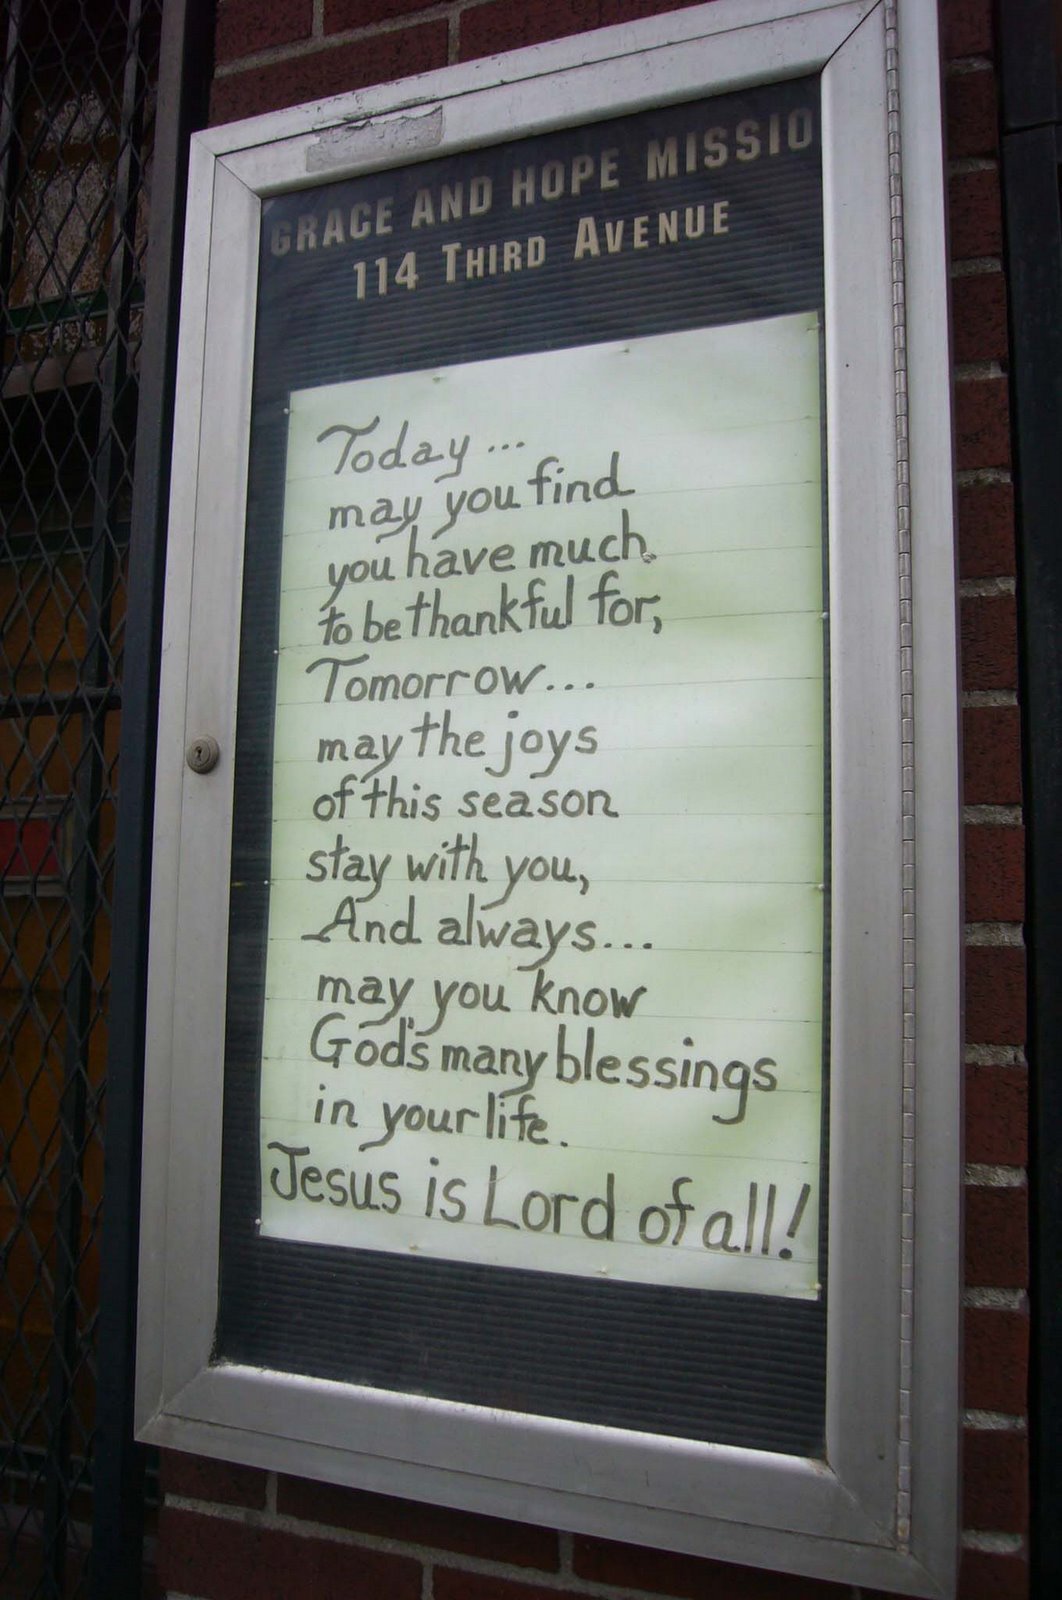 GRACE AND HOPE MISSIO
114 THIRD AVENUE
Today...
may you find
you have much
to be thankful for,
Tomorrow...
may the joys
of this season
stay with you,
And always...
may you know
God's many blessings
in your life.
Jesus is Lord of all!